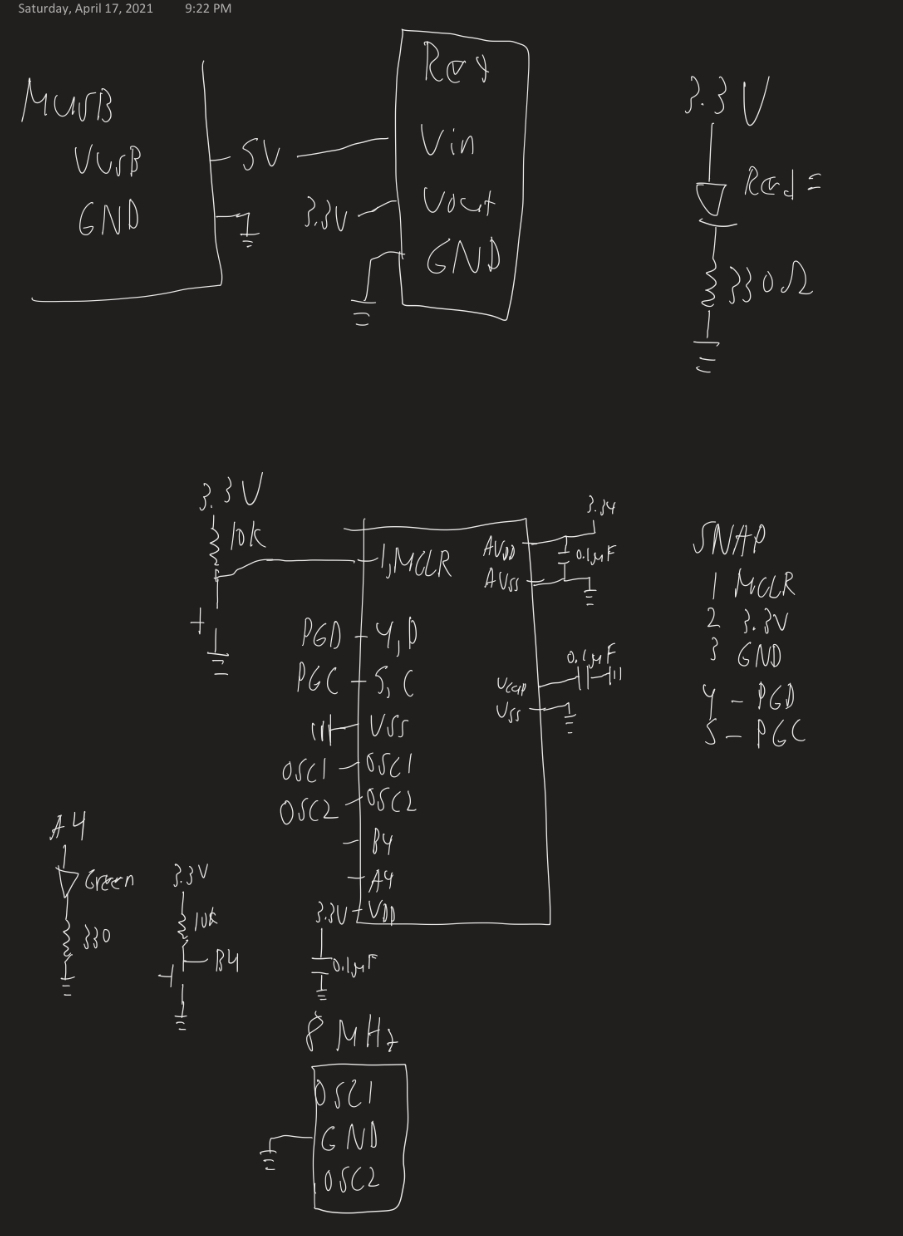 Saturday, April 17, 2021 9:22 PM
MUSB
VUSB
GND
5V
3.3V
Reg
Vin
Vout
GND
3.3V
Red
330Ω
3.3V
10k
1,MCLR
PGD 4,D
PGC 5,C
VSS
OSC1 OSC1
OSC2 OSC2
B4
A4
3.3V VDD
0.1µF
AVDD
AVSS
3.3V
0.1µF
VCAP
VSS
0.1µF
SNAP
1 MCLR
2 3.3V
3 GND
4 - PGD
5 - PGC
A4
Green
330
3.3V
10k
B4
8 MHz
OSC1
GND
OSC2